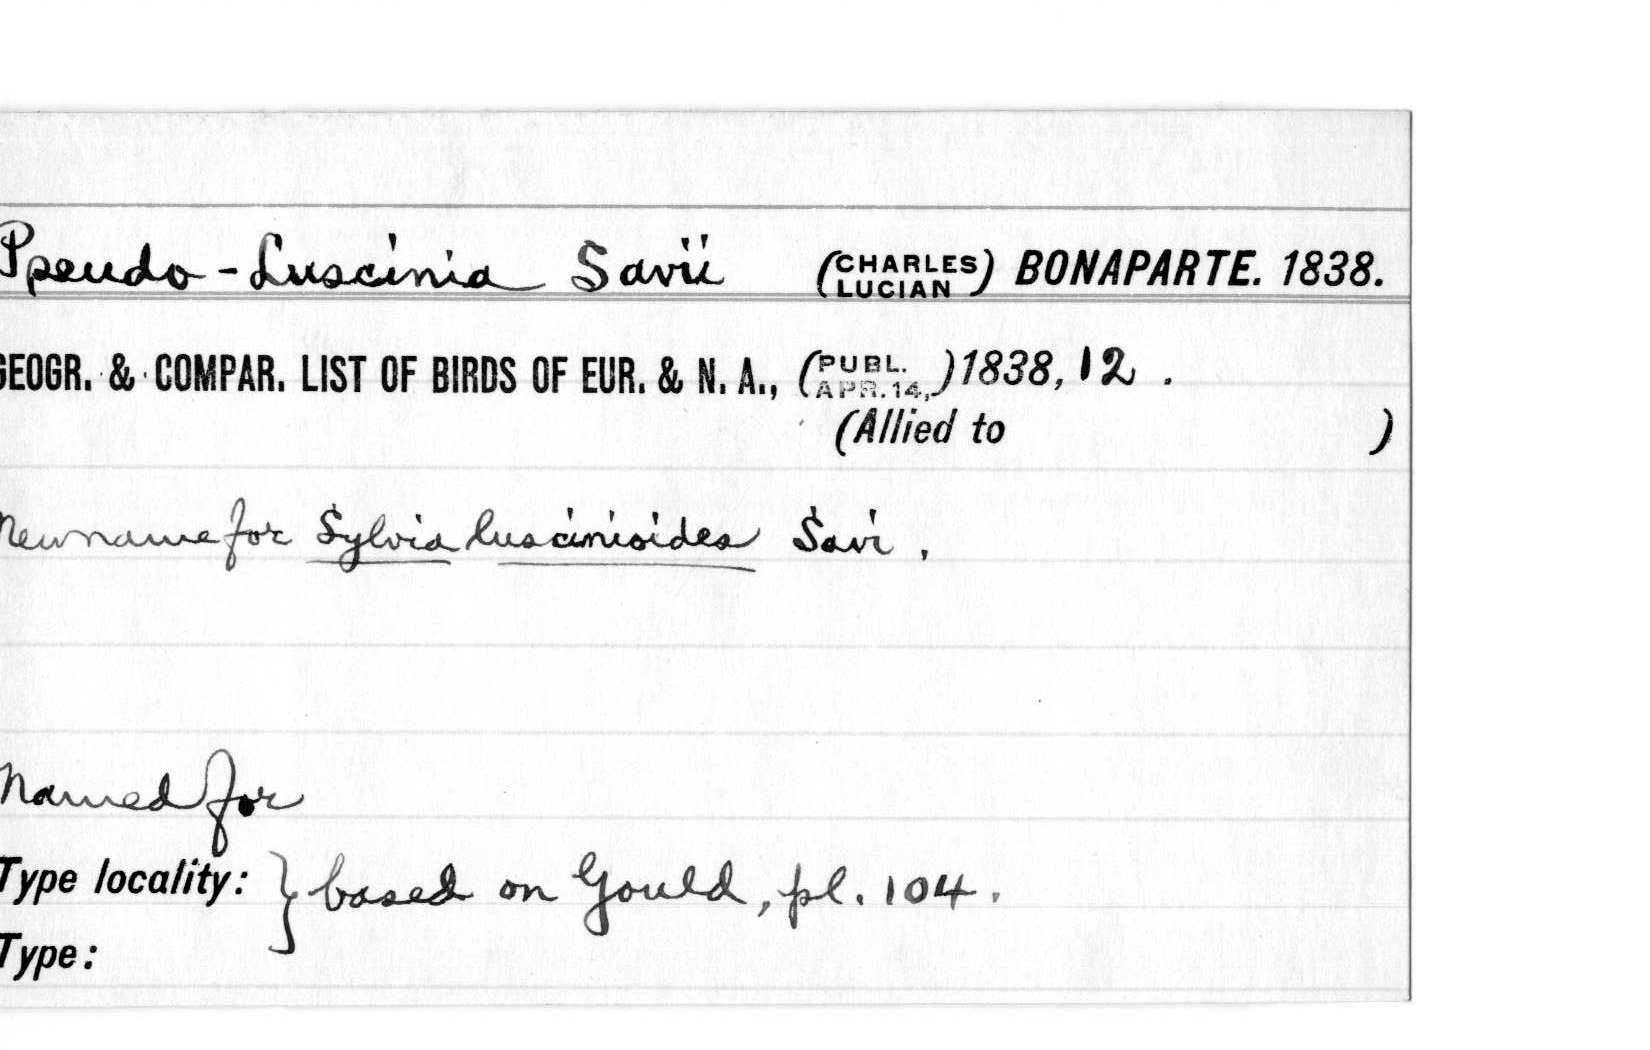 Pseudo-Luscinia Savii (CHARLES LUCIAN) BONAPARTE. 1838.
GEOGR. & COMPAR. LIST OF BIRDS OF EUR. & N. A., (PUBL. APR. 14,) 1838, 12.
(Allied to )
New name for Sylvia luscinioides Savi.
Named for
Type locality: } based on Gould, pl. 104.
Type: